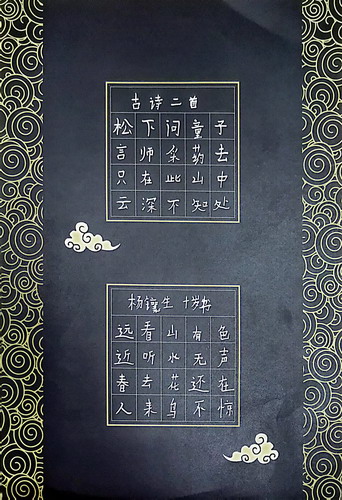 古诗二首
松下问童子
言师采药去
只在此山中
云深不知处
杨 生 十岁书
远看山有色
近听水无声
春去花还在
人来鸟不惊